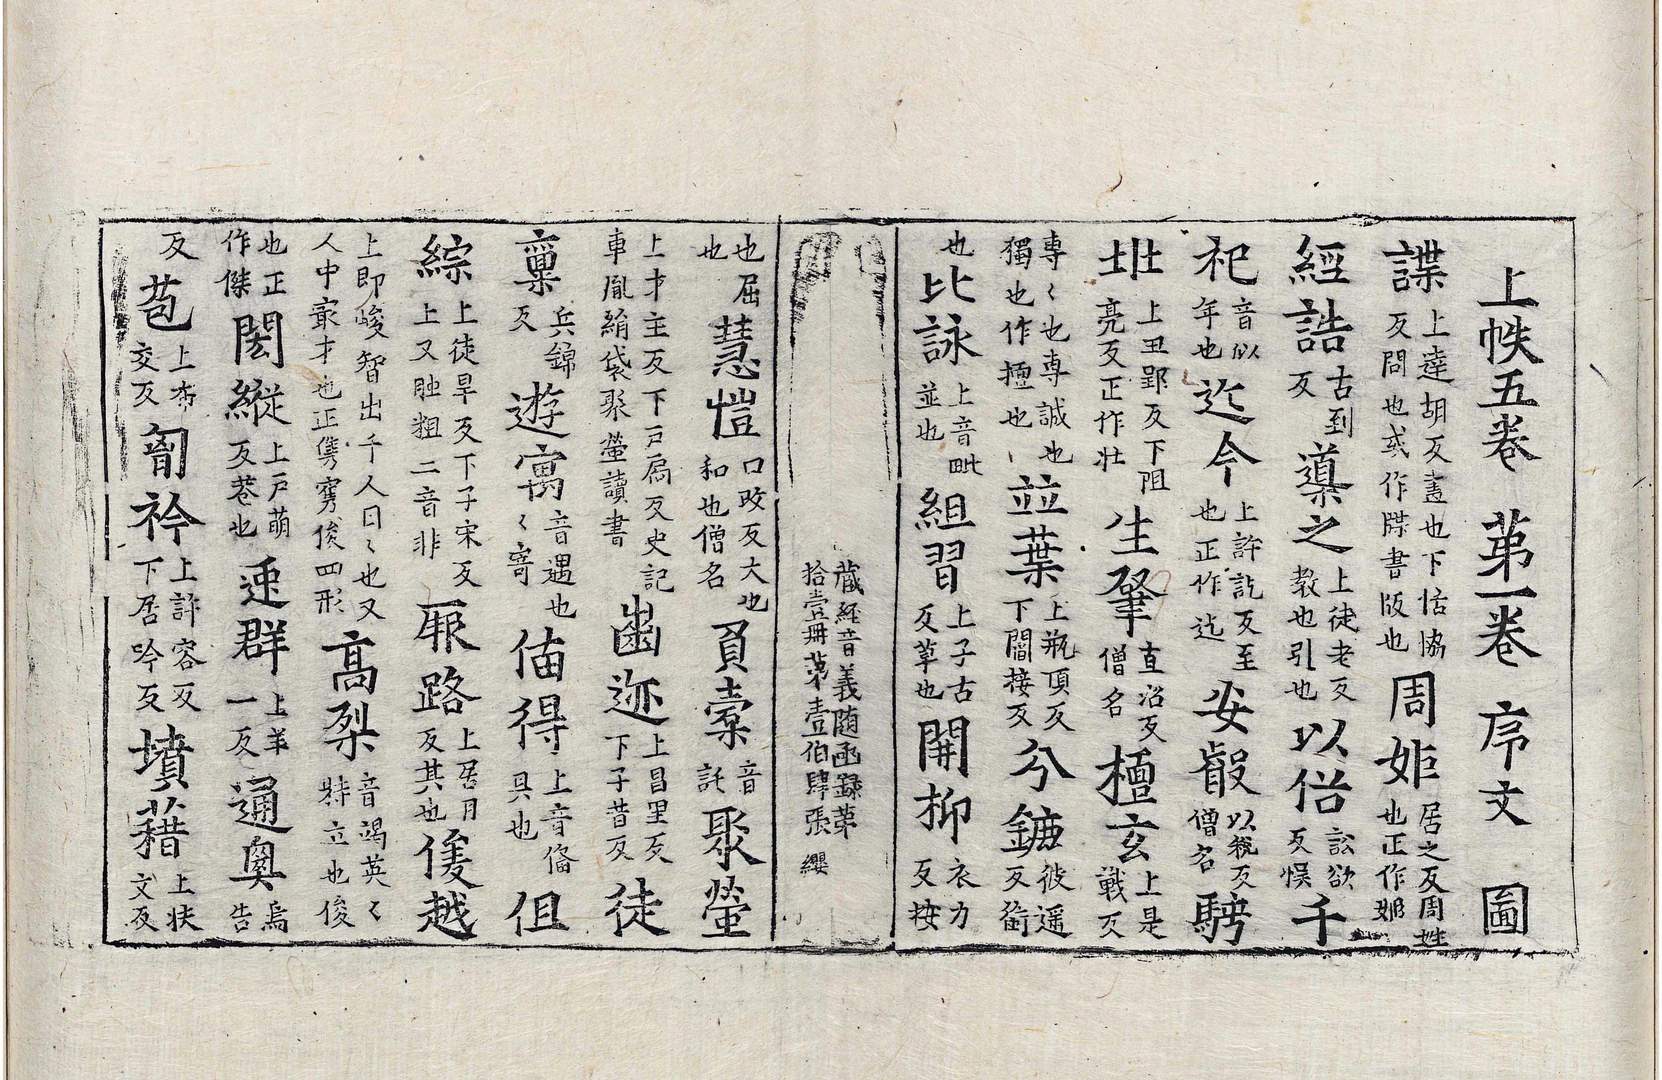 上帙五卷　第一卷　序文　圖
諜上達胡反畫也下恬協反問也或作牒書版也周姫居之反周姓也正作姬
經誥古到反導之上徒老反教也引也以俗訟欲反悞千
祀音似年也迄今上許訖反至也正作迄安叡以稅反僧名騁
壯上丑郢反下阻亮反正作壯生肇直沼反僧名檀玄上是戰反
專〻也專誠也獨也作擅也並葉上瓶頂反下閻接反分鑣彼遥反銜
也比詠上音毗並也組習上子古反草也開抑衣力反按
藏經音義随函録第拾壹冊第壹伯肆張　纓
也屈也慧愷口改反大也和也僧名負橐音託聚螢
上才主反下戸扃反史記車胤絹袋聚螢讀書 迹上昌里反下子昔反徒
稟兵錦反遊寓音遇也〻寄偹得上音俻具也但
綜上徒旱反下子宋反上又肚粗二音非厥路上居月反其也俊越
上即峻智出千人曰〻也又人中最才也正雋 俊四形高桀音竭英〻特立也俊
也正作傑閎縱上戸萌反巷也逸群上羊一反通奥烏告
反苞上布交反匈衿上許容反下居吟反墳藉上扶文反